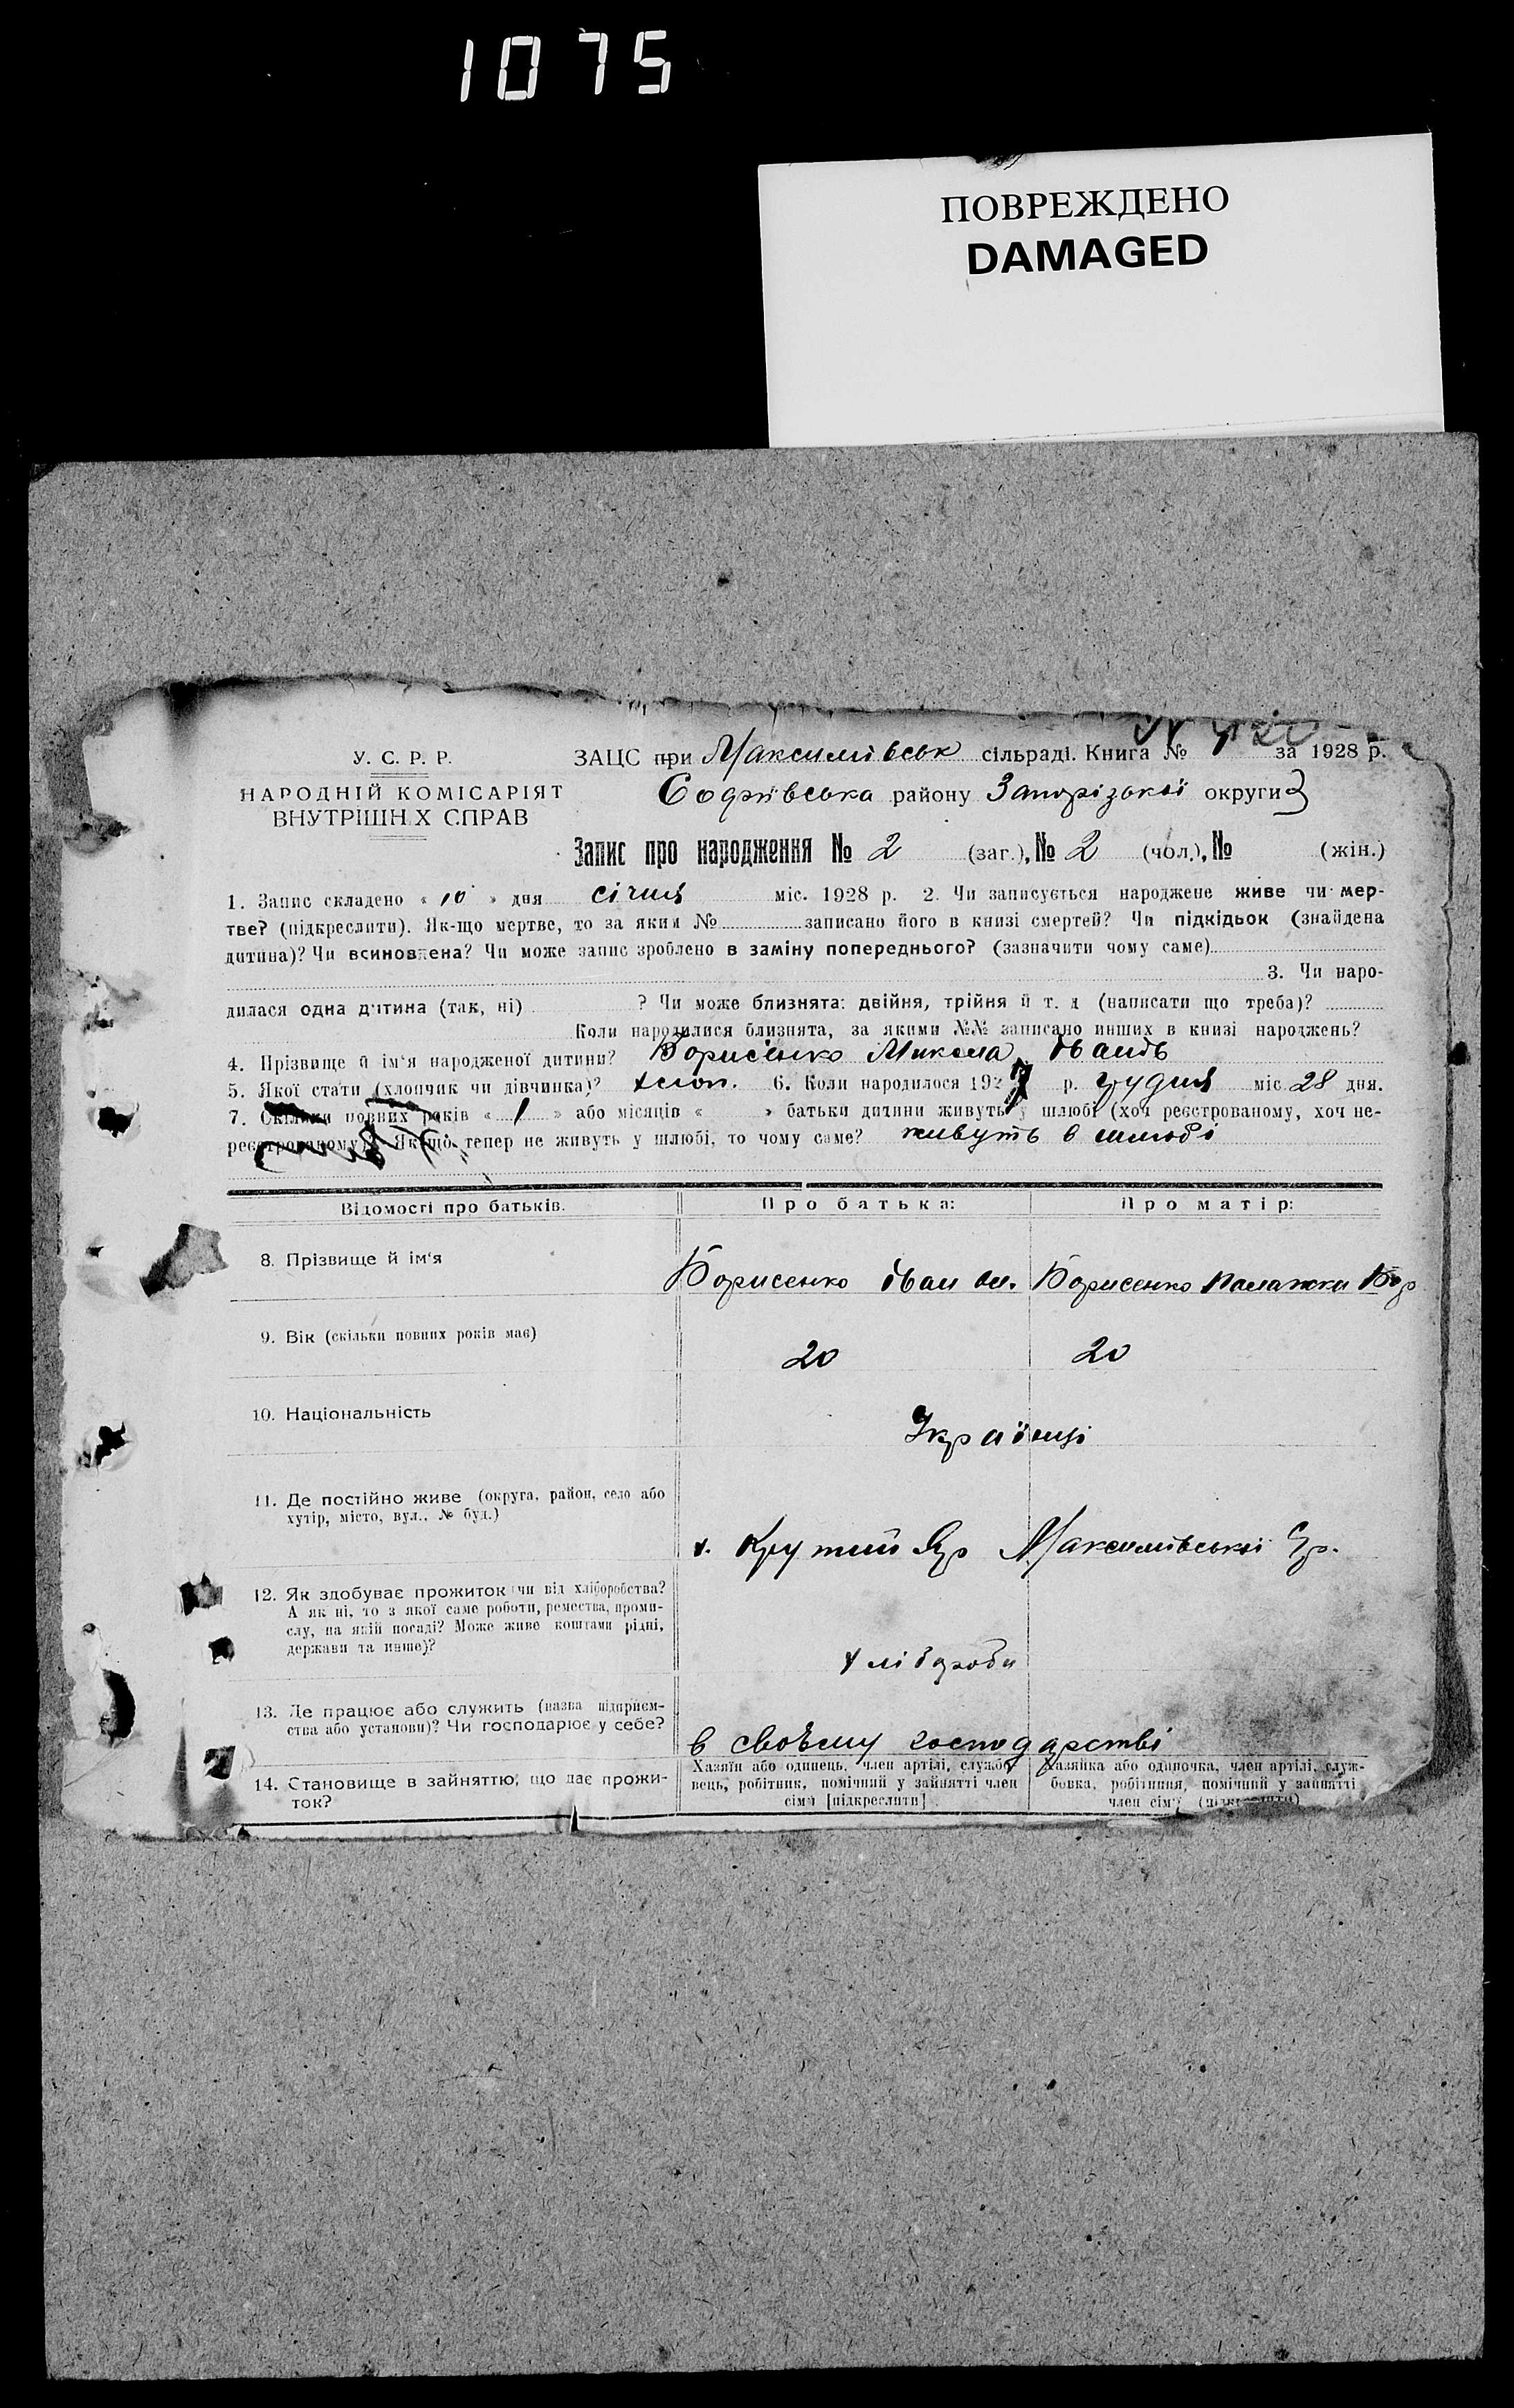 1075
ПОВРЕЖДЕНО
DAMAGED
У. С. Р. Р.
НАРОДНІЙ КОМІСАРІЯТ
ВНУТРІШН Х СПРАВ
ЗАЦС при Максимівськ сільраді. Книга № за 1928 р.
Софіївська району Запорізької округи
Запис про народження № 2 (заг.), № 2 (чол.), № (жін.)
1. Запис складено « 10 » дня січня міс. 1928 р. 2. Чи записується народжене живе чи мер-
тве? (підкреслити). Як-що мертве, то за яким № записано його в книзі смертей? Чи підкідьок (знайдена
дитина)? Чи всиновлена? Чи може запис зроблено в заміну попереднього? (зазначити чому саме)
3. Чи наро-
дилася одна дитина (так, ні) ? Чи може близнята: двійня, трійня й т. д (написати що треба)?
Коли народилися близнята, за якими №№ записано инших в книзі народжень?
4. Прізвище й ім‘я народженої дитини? Борисенко Микола Іванов
5. Якої стати (хлопчик чи дівчинка)? хлоп. 6. Коли народилося 1927 р. грудня міс. 28 дня.
7. Скільки повних років « 1 » або місяців « » батьки дитини живуть у шлюбі (хоч реєстрованому, хоч не-
реєстрованому)? Як-що тепер не живуть у шлюбі, то чому саме? живуть в шлюбі
Відомості про батьків. Про батька: Про матір:
8. Прізвище й ім‘я Борисенко Іван Борисенко Палажка
9. Вік (скільки повних років має) 20 20
10. Національність Українці
11. Де постійно живе (округа, район, село або
хутір, місто, вул., № буд.)
х. Крутий Яр Максимівської
12. Як здобуває прожиток (чи від хліборобства?
А як ні, то з якої саме роботи, ремества, проми-
слу, на якій посаді? Може живе коштами рідні,
держави та инше)?
хлібороби
13. Де працює або служить (назва підприєм-
ства або установи)? Чи господарює у себе?
в своєму господарстві
14. Становище в зайняттю, що дає прожи-
ток?
Хазяїн або одинець, член артілі, службо-
вець, робітник, помічний у зайнятті член
сім‘ї [підкреслити]
Хазяйка або одиночка, член артілі, служ-
бовка, робітниця, помічний у зайнятті
член сім‘ї (підкреслити)